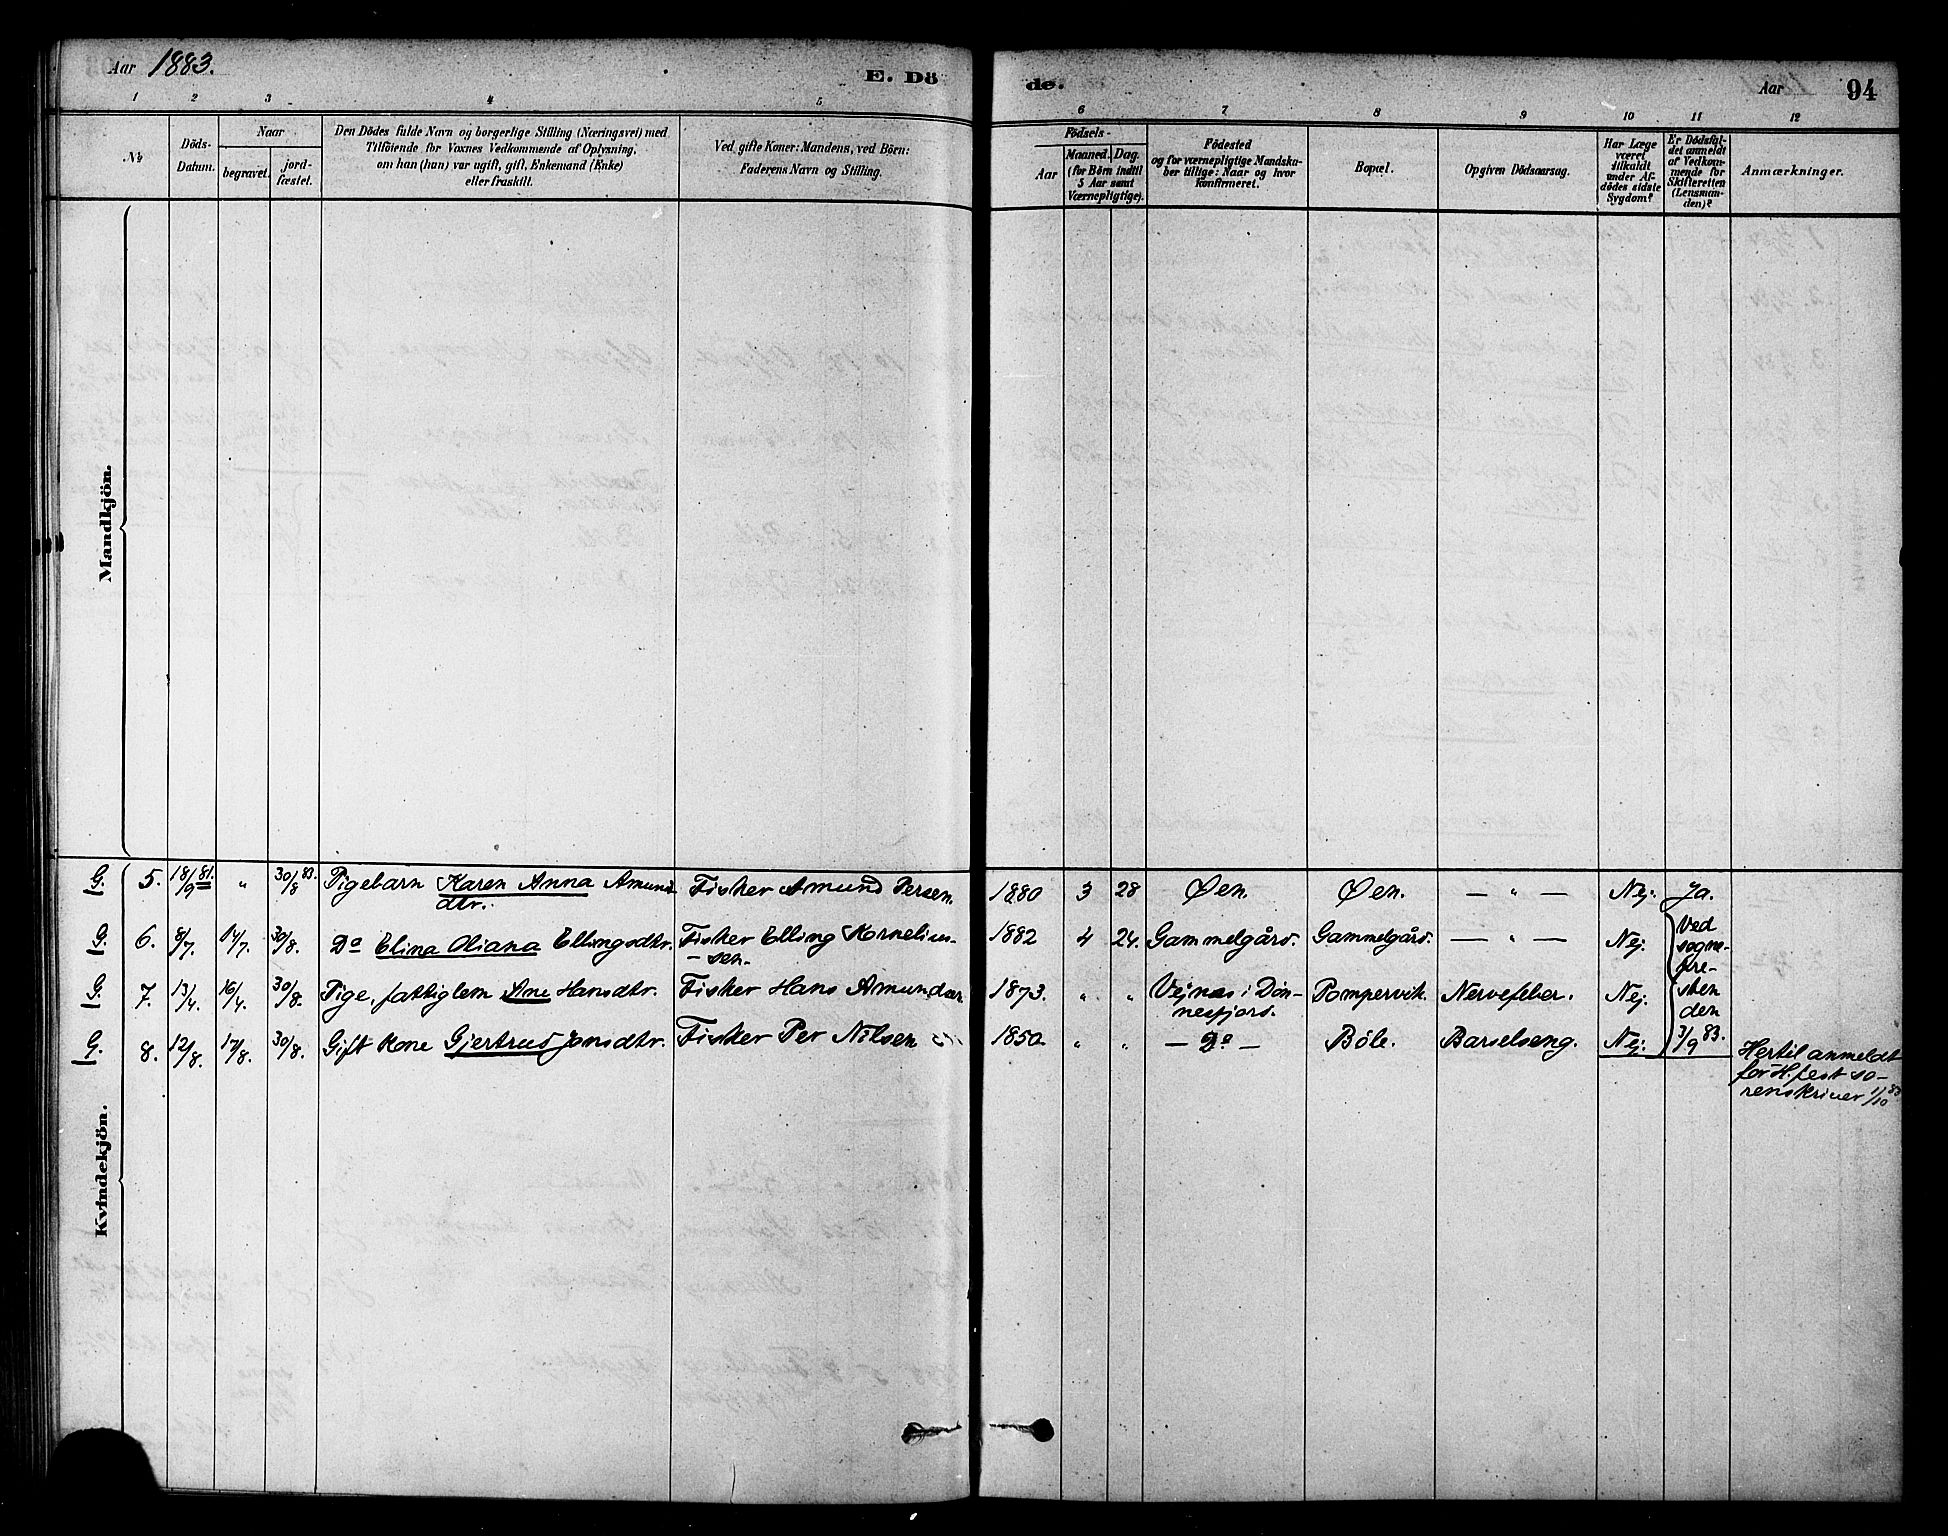 Aar 1883.
E. Dö
de.
Aar
94
1 2 3 4 5 6 7 8 9 10 11 12
No
Döds-
Datum.
Naar
begravet.
jord-
fæstet.
Den Dödes fulde Navn og borgerlige Stilling (Næringsvei) med
Tilföiende for Voxnes Vedkommende af Oplysning,
om han (hun) var ugift, gift, Enkemand (Enke)
eller fraskilt.
Ved gifte Koner: Mandens, ved Börn:
Faderens Navn og Stilling.
Födsels-
Aar
Maaned. Dag.
(for Börn indtil
5 Aar samt
Værnepligtige).
Födested
og for værnepligtige Mandska-
ber tillige: Naar og hvor
konfirmeret.
Bopæl.
Opgiven Dödsaarsag.
Har Læge
været
tilkaldt
under Af-
dödes sidste
Sygdom?
Er Dödsfal-
det anmeldt
af Vedkom-
mende for
Skifteretten
(Lensman-
den)?
Anmærkninger.
Mandkjön.
G. 5. 18/9 81. " 30/8 83. Pigebarn Karen Anna Amunds
dtr.
Fisker Amund Persen. 1880 3 28 Øen. Øen. — " — Nej. Ja.
G. 6. 8/7. 14/7. 30/8. Do Elina Oliana Ellingsdtr. Fisker Elling Kornelius-
-sen.
1882 4 24. Gammelgård. Gammelgård. — " — Nej.
Ved
sogne-
pre-
sten
den
3/9 83.
G. 7. 13/4. 16/4. 30/8. Pige, fattiglem Ane Hansdtr. Fisker Hans Amundsen 1873. " " Vejnæs i Døn-
nesfjord.
Pompervik. Nervefeber. Nej.
G. 8. 12/8. 17/8. 30/8. Gift Kone Gjertrud Jonsdtr. Fisker Per Nilsen 1850. " " — Do — Böle. Barselseng. Nej.
Hertil anmeldt
for H.fest so-
renskriver 1/10 83
Kvindekjön.